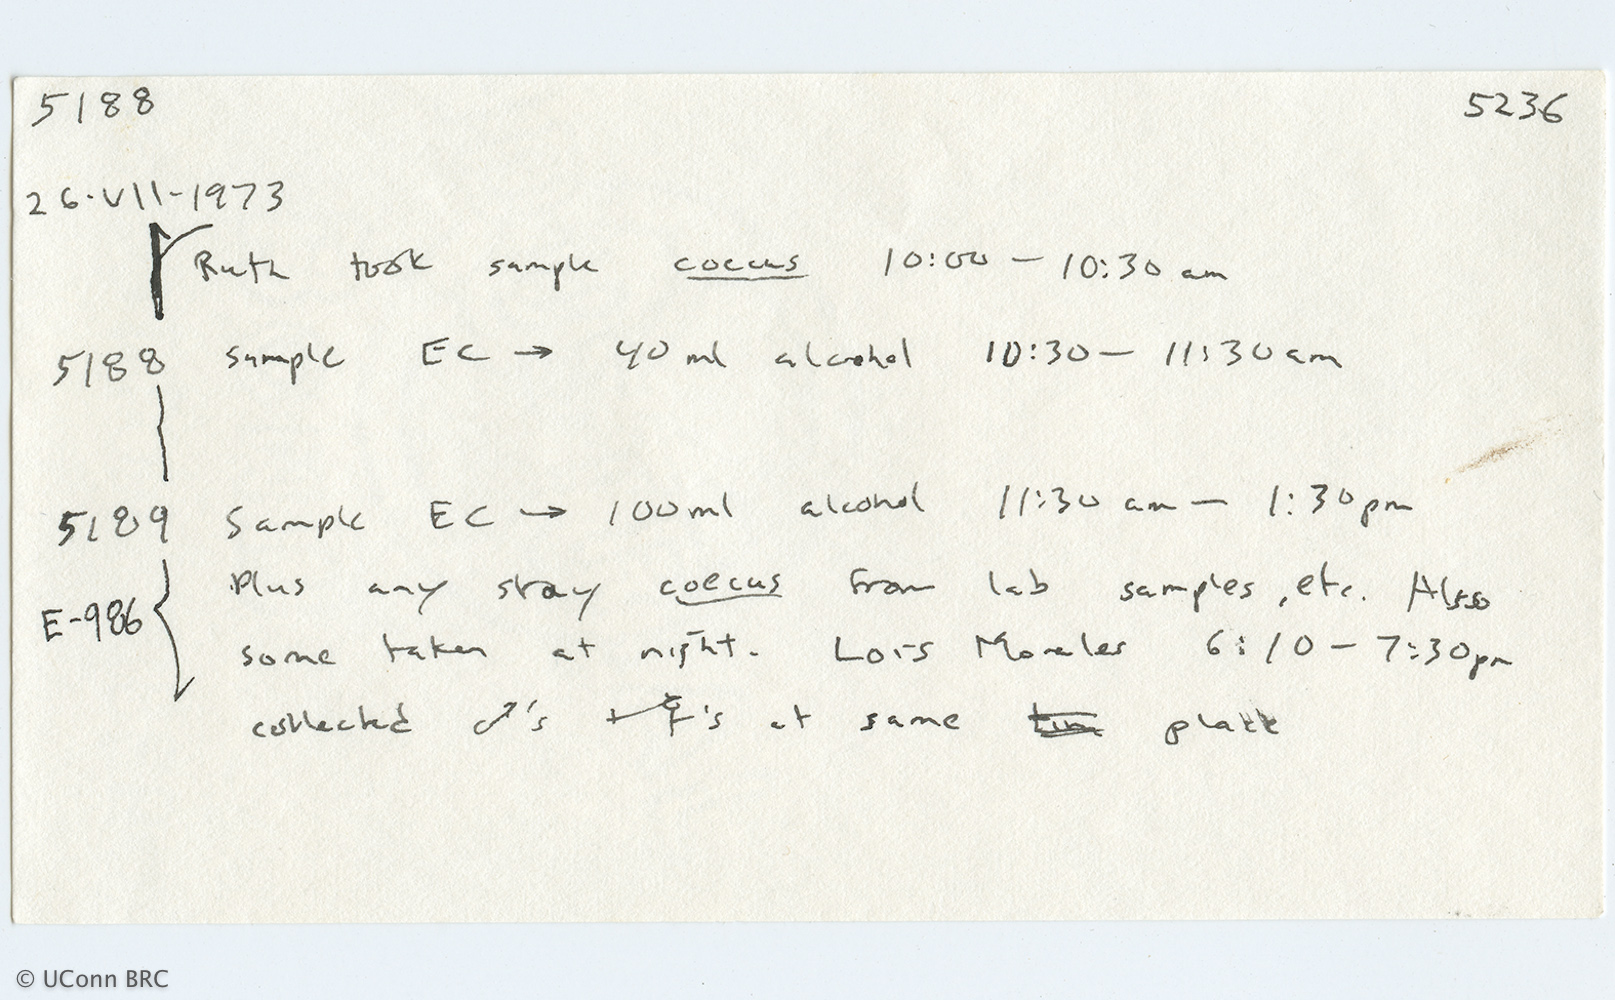 5188 5236
26·VII-1973
Ruth took sample coecus 10:00 – 10:30 am
5188 sample EC → 40 ml alcohol 10:30 – 11:30 am
5189 Sample EC → 100 ml alcohol 11:30 am – 1:30 pm
Plus any stray coecus from lab samples, etc. Also
E-986
some taken at night. Lois Morales 6:10 – 7:30 pm
collected ♂'s + ♀'s at same place
© UConn BRC